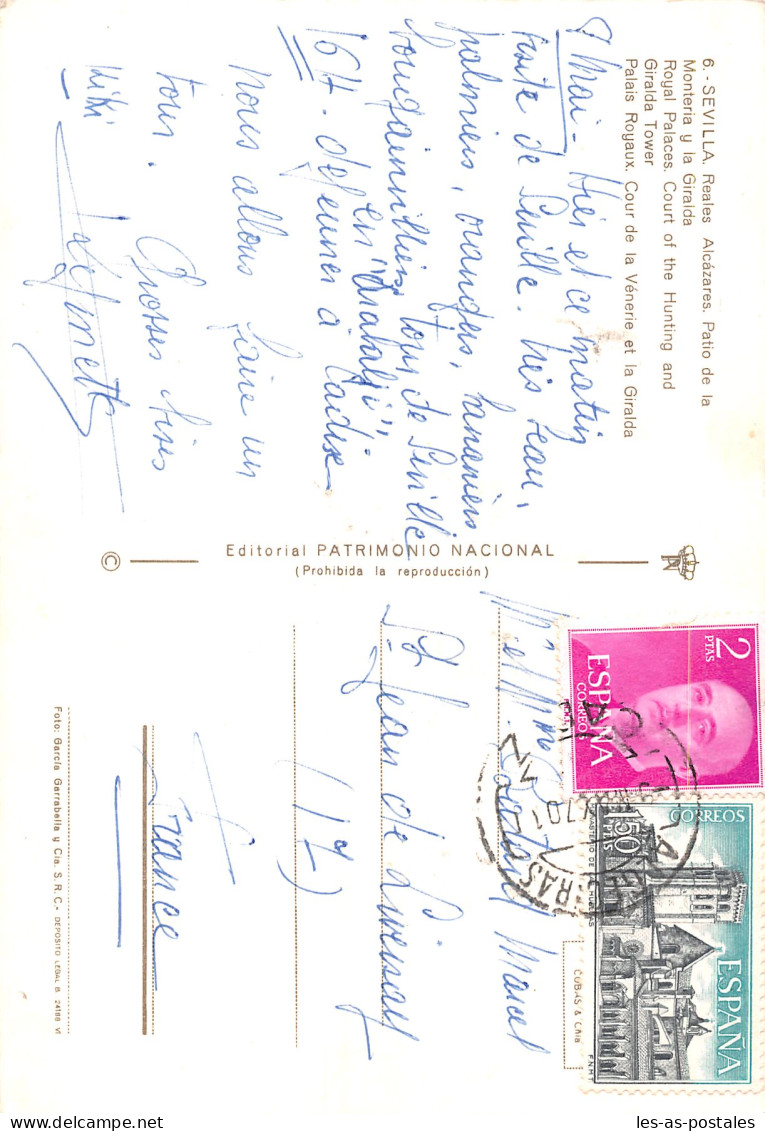 6.- SEVILLA. Reales Alcázares. Patio de la
Montería y la Giralda
Royal Palaces. Court of the Hunting and
Giralda Tower
Palais Royaux. Cour de la Vénerie et la Giralda
8 Mai - Hier et ce matin
visite de Séville. Très beau,
palmiers, orangers, bananiers
bougainvilliers, tous de Séville
en
16h. déjeuner à Cadix
nous allons faire un
tour. Grosses bises
Kiki
Editorial PATRIMONIO NACIONAL
(Prohibida la reproducción)
©
M. et Mme Marcel
St Jean de Liversay
(17)
France
2
PTAS
ESPAÑA
CORREOS
CORREOS
1'50
PTAS
ESPAÑA
F.N.M.T
CUBAS & Cñia
Foto: García Garrabella y Cía. S.R.C.- DEPOSITO LEGAL B. 24188 VI
les-as-postales.com